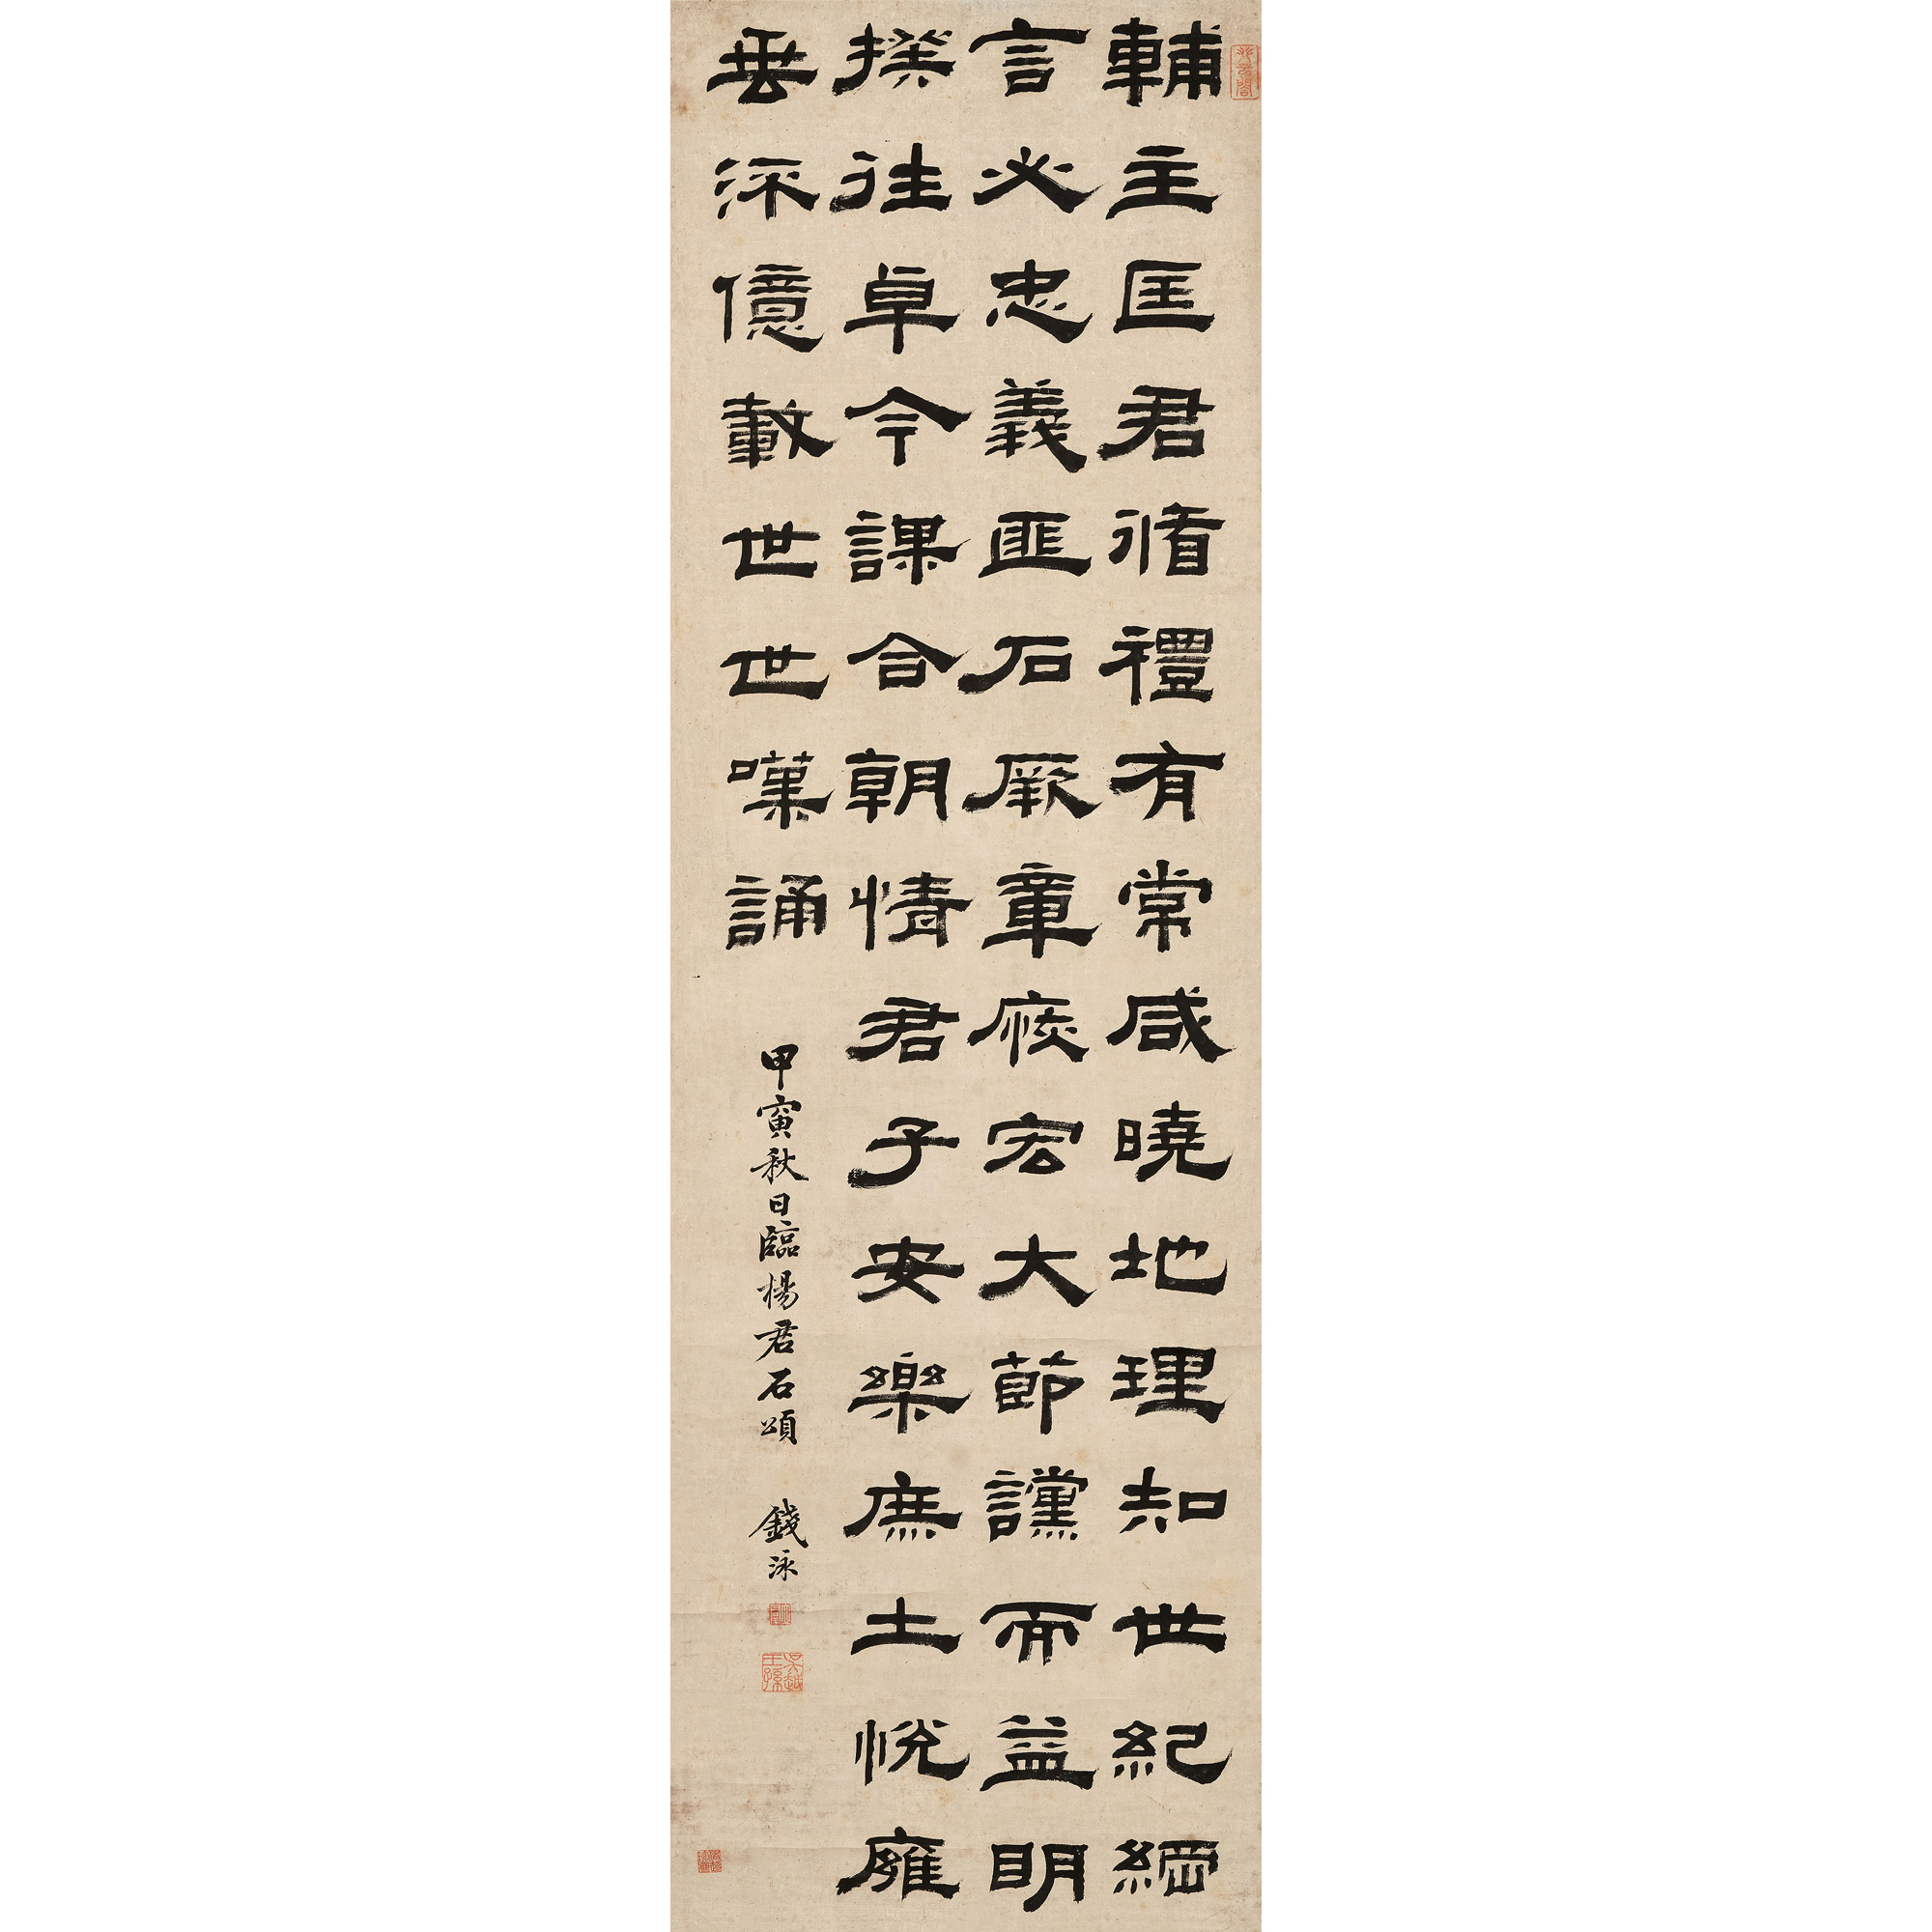 輔主匡君循禮有常咸曉地理知世紀綱
言必忠義匪石厥章恢宏大節讜而益明
揆往卓今謀合朝情君子安樂庶土悅雍
垂流億載世世嘆誦
甲寅秋日臨楊君石頌
錢泳
吳越王孫